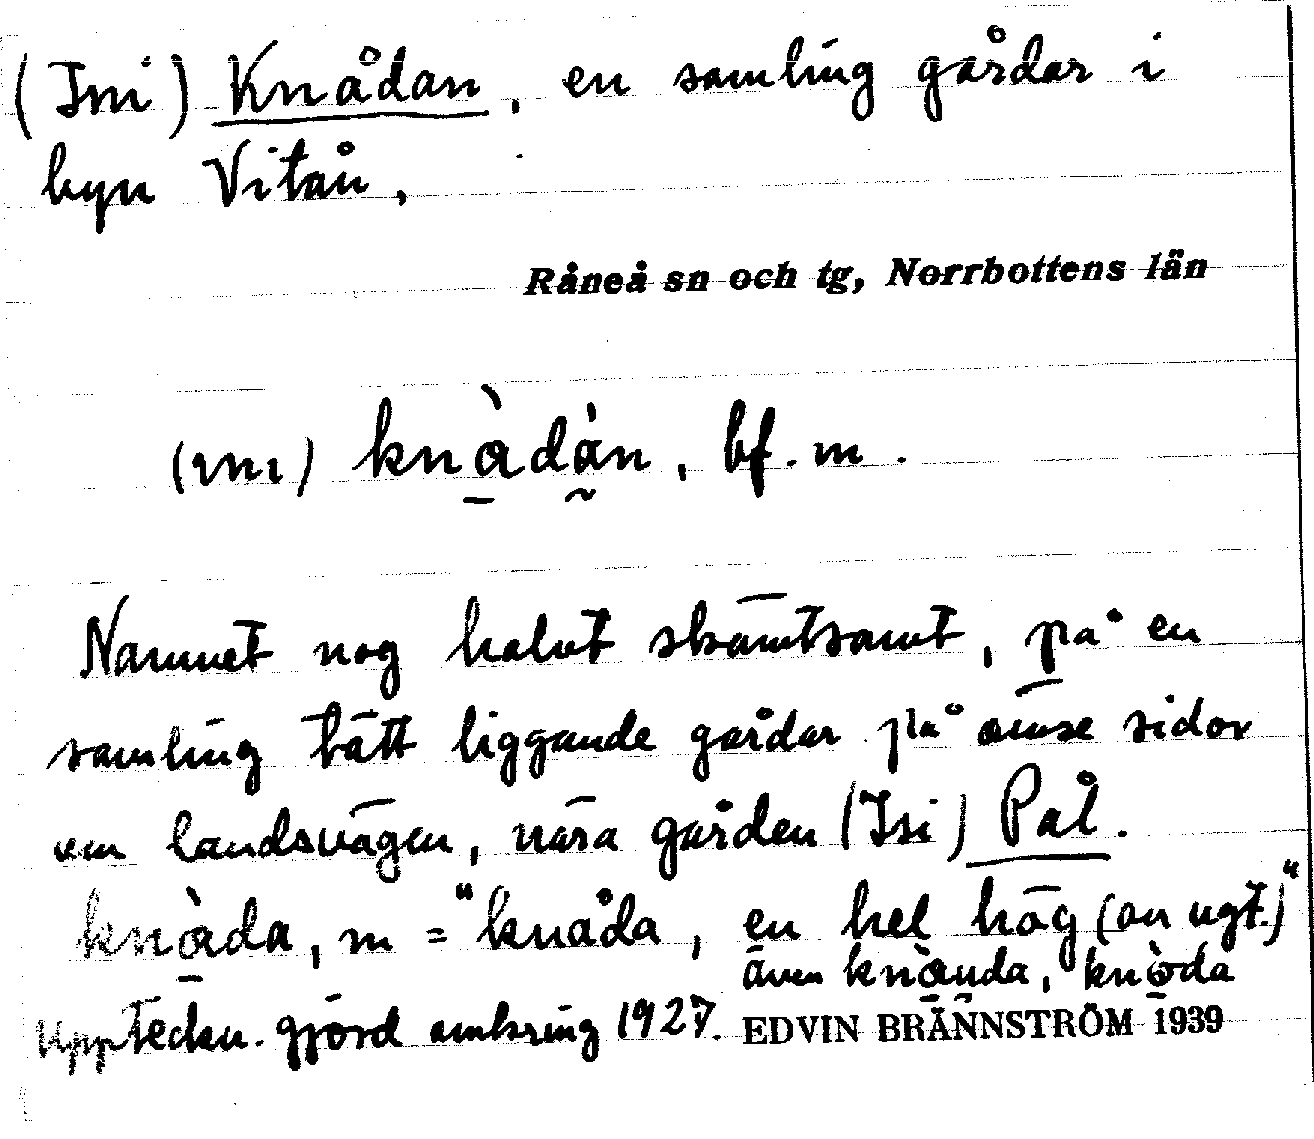 (Ini) Knådan, en samling gårdar i
byn Vitån,
Råneå sn och tg, Norrbottens län
(ɪnɪ) knàdàn, bf. m.
Namnet nog halvt skämtsamt, på en
samling tätt liggande gårdar på ömse sidor
om landsvägen, nära gården (Isi) Pål.
knàda, m = "knåda, en hel hög (av ngt.)"
även knàuda, knòda
Uppteckn. gjord omkring 1927. EDVIN BRÄNNSTRÖM 1939